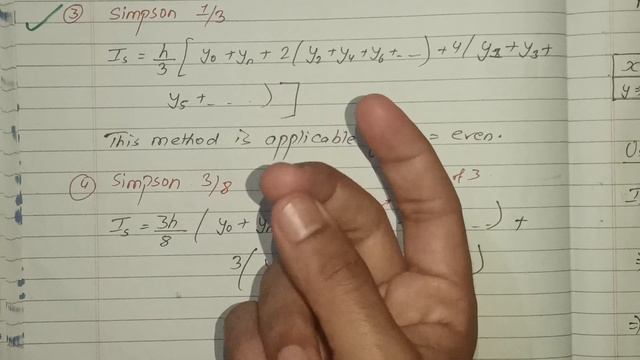 ③ Simpson 1/3
Is = h/3 [ y0 + yn + 2 ( y2 + y4 + y6 + -- ) + 4 ( y1 + y3 +
y5 + -- . . ) ]
This method is applicable = even.
④ Simpson 3/8 of 3
Is = 3h/8 ( y0 + yn -- ) +
3 ( )
x
y =
I
⇒
⇒)